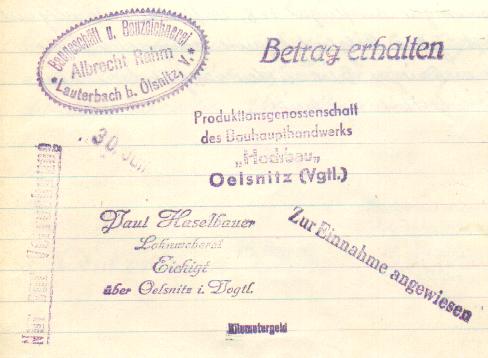 Baugeschäft u. Bauzeichnerei
Albrecht Rahm
* Lauterbach b. Ölsnitz, V. *
Betrag erhalten
Produktionsgenossenschaft
des Bauhaupthandwerks
„Hochbau"
Oelsnitz (Vgtl.)
30. JUN
Paul Haselbauer
Lohnweberei
Eichigt
über Oelsnitz i. Vogtl.
Zur Einnahme angewiesen
Kilometergeld